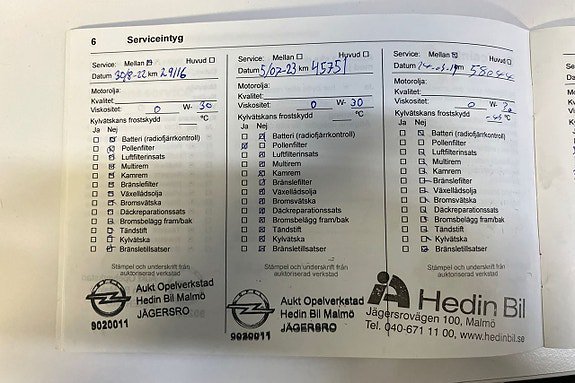 6 Serviceintyg
Service: Mellan Huvud
Datum 30/8-22 km 29116
Motorolja:
Kvalitet:
Viskositet: 0 W- 30
Kylvätskans frostskydd °C
Ja Nej
Batteri (radiofjärrkontroll)
Pollenfilter
Luftfilterinsats
Multirem
Kamrem
Bränslefilter
Växellådsolja
Bromsvätska
Däckreparationssats
Bromsbelägg fram/bak
Tändstift
Kylvätska
Bränsletillsatser
Stämpel och underskrift från
auktoriserad verkstad
Aukt Opelverkstad
Hedin Bil Malmö
JÄGERSRO
9020011
Service: Mellan Huvud
Datum 5/07-23 km 45751
Motorolja:
Kvalitet:
Viskositet: 0 W- 30
Kylvätskans frostskydd °C
Ja Nej
Batteri (radiofjärrkontroll)
Pollenfilter
Luftfilterinsats
Multirem
Kamrem
Bränslefilter
Växellådsolja
Bromsvätska
Däckreparationssats
Bromsbelägg fram/bak
Tändstift
Kylvätska
Bränsletillsatser
Stämpel och underskrift från
auktoriserad verkstad
Aukt Opelverkstad
Hedin Bil Malmö
JÄGERSRO
9020011
Service: Mellan Huvud
Datum km 58044
Motorolja:
Kvalitet:
Viskositet: 0 W-
Kylvätskans frostskydd °C
Ja Nej
Batteri (radiofjärrkontroll)
Pollenfilter
Luftfilterinsats
Multirem
Kamrem
Bränslefilter
Växellådsolja
Bromsvätska
Däckreparationssats
Bromsbelägg fram/bak
Tändstift
Kylvätska
Bränsletillsatser
Stämpel och underskrift från
auktoriserad verkstad
Hedin Bil
Jägersrovägen 100, Malmö
Tel. 040-671 11 00, www.hedinbil.se